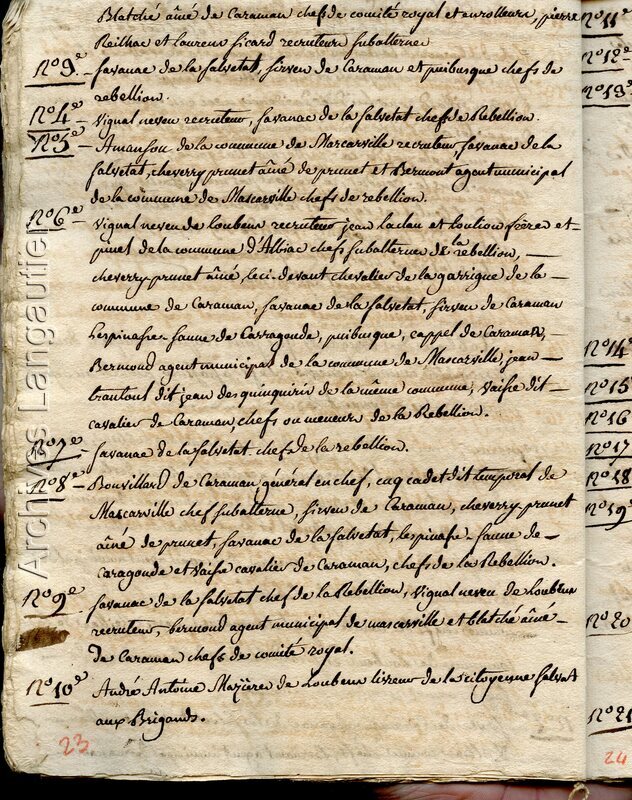 Blatché âiné de Caraman chefs de comité royal et enrolleurs, pierre
Reilhac et Laurens sicard recruteurs subalternes
N° 3e - Savanac de la Salvetat, sirven de Caraman et puibusque chefs de
rebellion.
N° 4e - Vignal neveu recruteur, Savanac de la Salvetat chefs de Rebellion.
N° 5e - de la commune de Mascarville recruteur, Savanac de la
Salvetat, cheverry prunet âiné de prunet et Bermont agent municipal
de la commune de Mascarville chefs de rebellion.
N° 6e - Vignal neveu de Loubens recruteur jean et frères et
de la commune d'Albiac chefs subalternes de la rebellion, —
cheverry prunet âiné, le ci-devant chevalier de la garrigue de la —
commune de Caraman, Savanac de la Salvetat, sirven de Caraman
Lespinasse-saune de Carragoude, puibusque, cappel de Caraman,
Bermond agent municipal de la commune de Mascarville, jean —
dit jean des quinquiris de la même commune, Vaisse dit —
cavalier de Caraman, chefs ou meneurs de la Rebellion.
N° 7e - Savanac de la Salvetat chef de la rebellion.
N° 8e - Bouvillard de Caraman général en chef, cadet dit temporal de
Mascarville chef subalterne, sirven de Caraman, cheverry-prunet
âiné de prunet, Savanac de la Salvetat, lespinasse-saune de —
Caragoude et Vaisse cavalier de Caraman, chefs de la Rebellion.
N° 9e - Savanac de la Salvetat chef de la Rebellion, Vignal neveu de Loubens
recruteur, bermond agent municipal de mascarville et blatché âiné —
de Caraman chefs de comité royal.
N° 10e - André Antoine Mazières de Loubens livreur de la citoyenne Salvat
aux Brigands.
23
N° 11e
N° 12e
N° 13e
N° 14e
N° 15e
N° 16
N° 17
N° 18
N° 19e
N° 20
N° 21
24
Archives Langautier